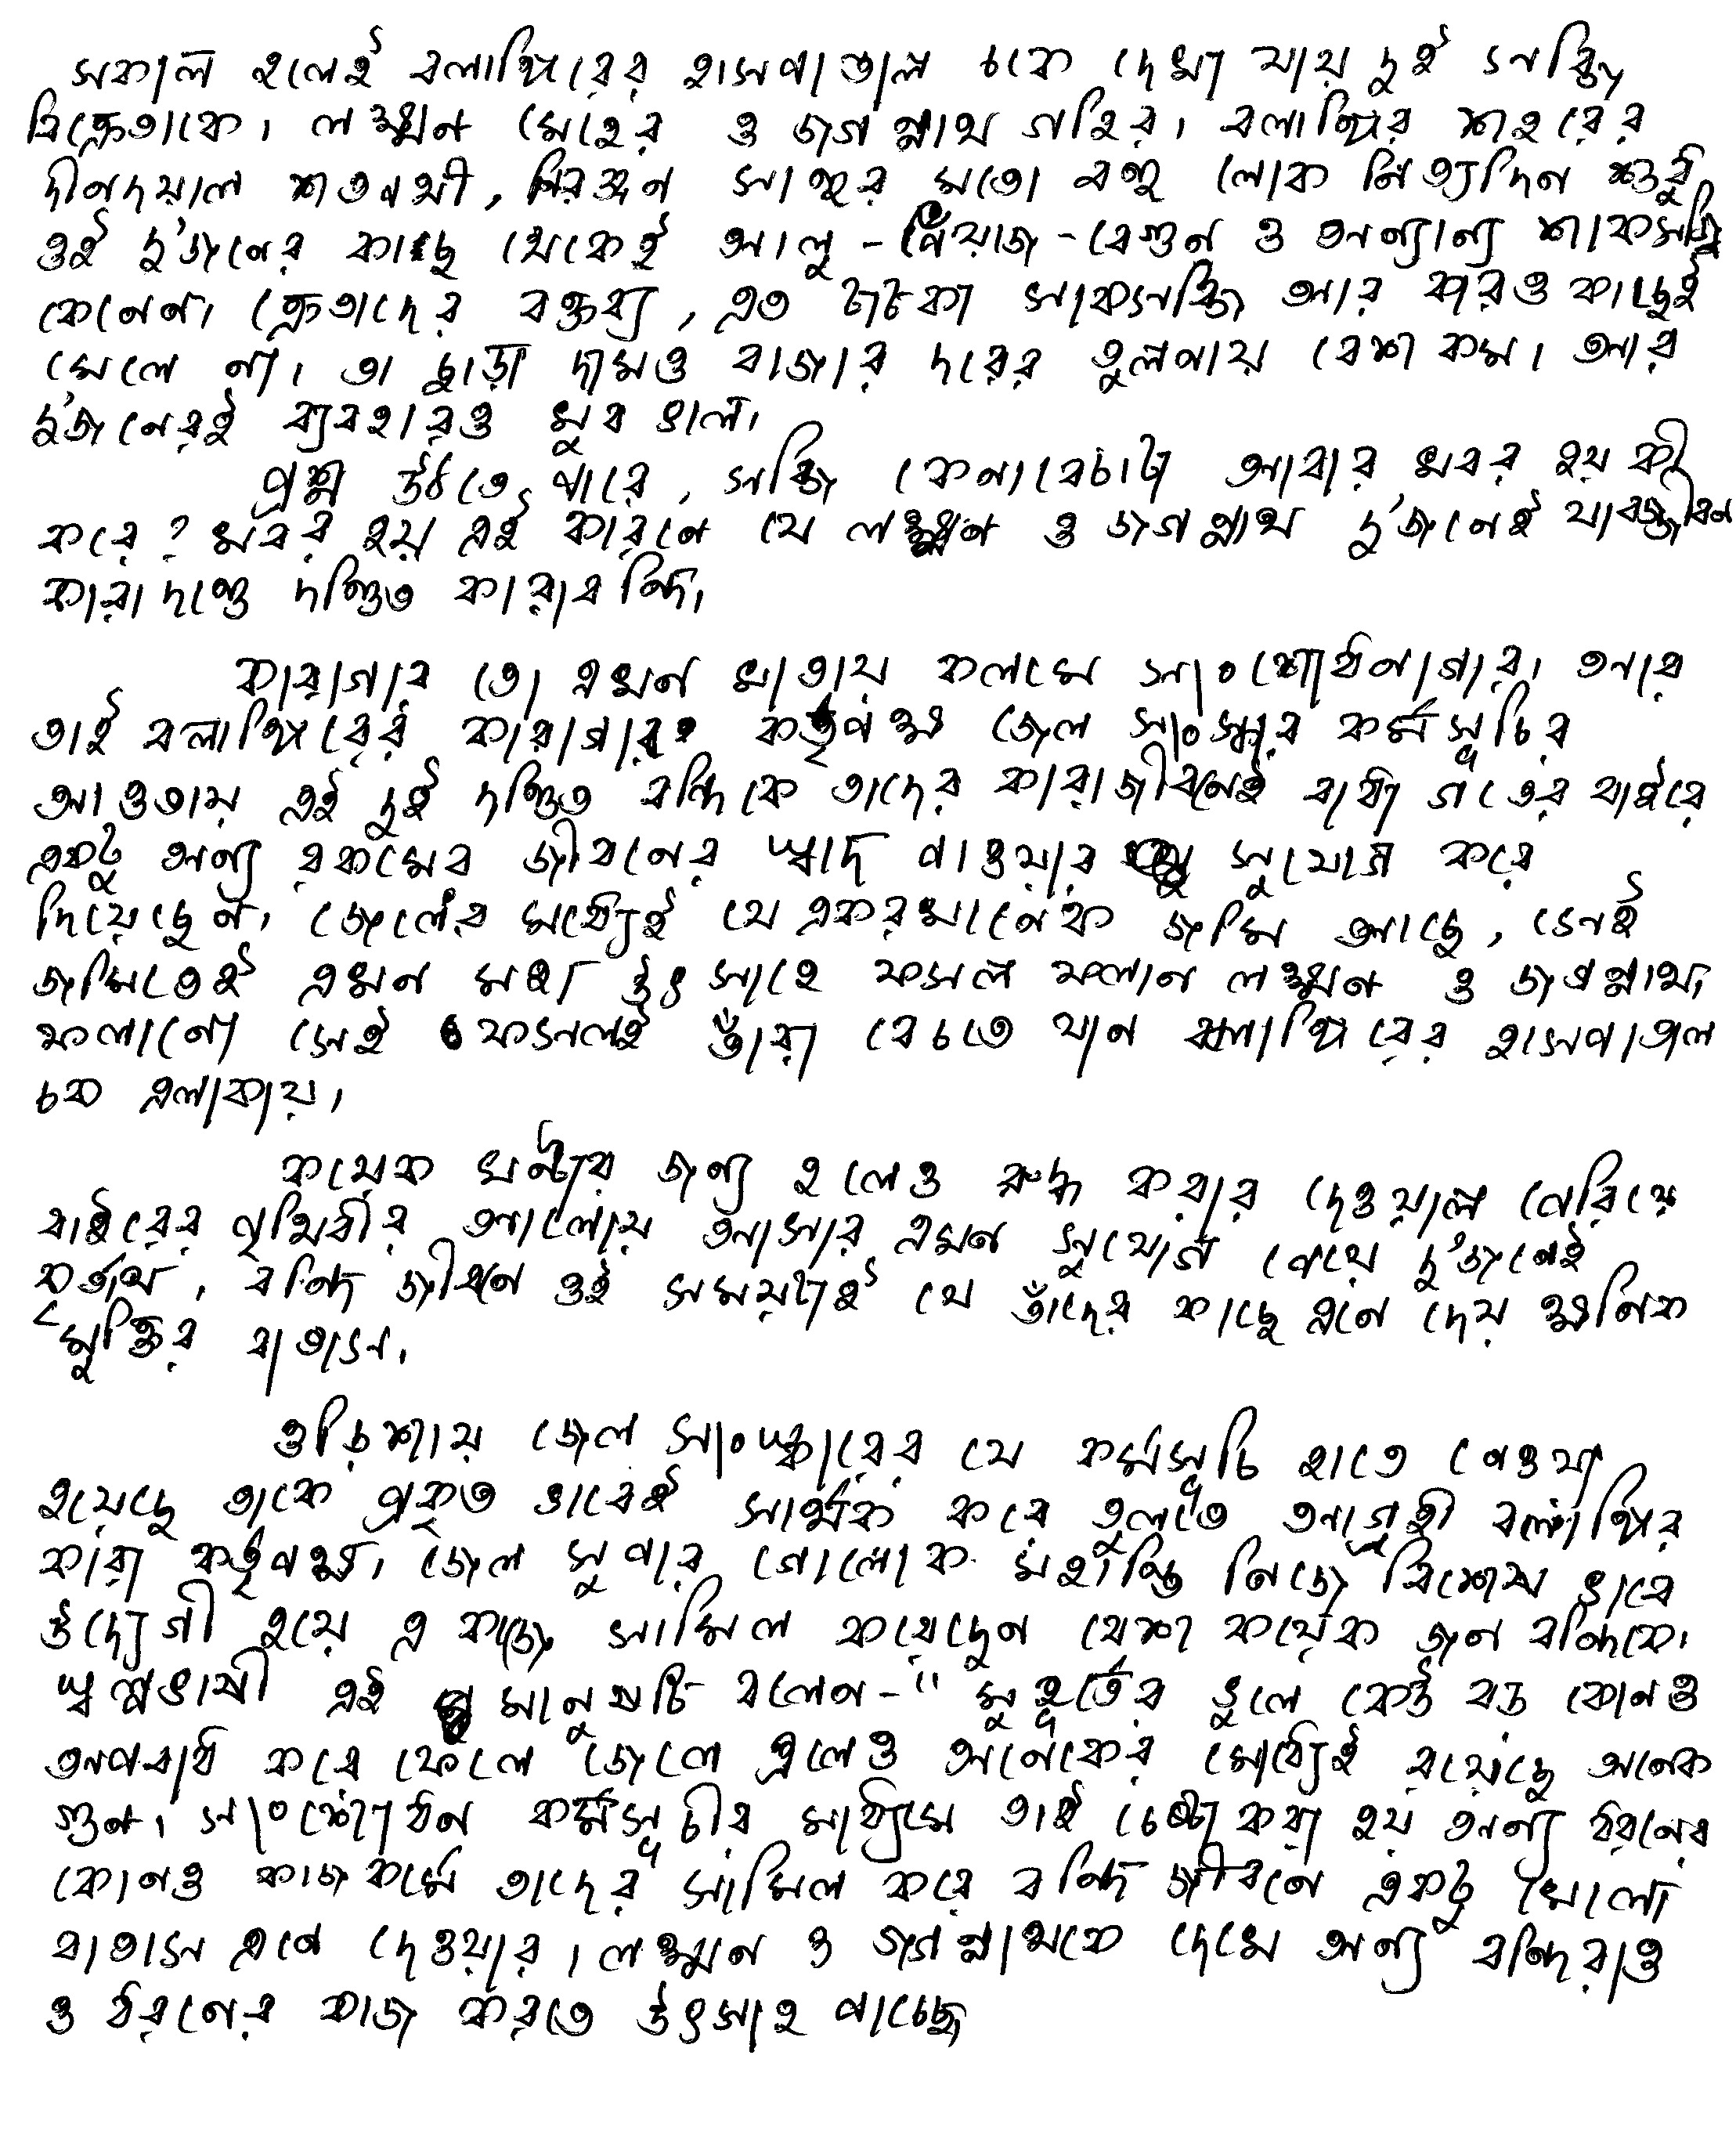 সকাল হলেই বলাঙ্গিরের হাসপাতাল চকে দেখা যায় দুই সব্জি
বিক্রেতাকে। লক্ষ্মন মেহের ও জগন্নাথ গহির। বলাঙ্গির শহরের
দীনদয়াল শতপথী, নিরঞ্জন সাহুর মতো বহু লোক নিত্যদিন শুধু
ওই দু'জনের কাছ থেকেই আলু-পেঁয়াজ-বেগুন ও অন্যান্য শাকসব্জি
কেনেন। ক্রেতাদের বক্তব্য, এত টাটকা সাকসব্জি আর কারও কাছেই
মেলে না। তা ছাড়া দামও বাজার দরের তুলনায় বেশ কম। আর
দু'জনেরই ব্যবহারও খুব ভাল।
প্রশ্ন উঠতে পারে, সব্জি কেনাবেচাটা আবার খবর হয় কী
করে? খবর হয় এই কারনে যে লক্ষ্মন ও জগন্নাথ দু'জনেই যাবজ্জীবন
কারাদণ্ডে দণ্ডিত কারাবন্দি।
কারাগার তো এখন খাতায় কলমে সংশোধনাগার। আর
তাই বলাঙ্গিরের কারাগার কর্তৃপক্ষ জেল সংস্কার কর্মসূচির
আওতায় এই দুই দণ্ডিত বন্দিকে তাদের কারাজীবনেই বাধা গতের বাইরে
একটু অন্য রকমের জীবনের স্বাদ পাওয়ার সুযোগ করে
দিয়েছেন। জেলের মধ্যেই যে একরখানেক জমি আছে, সেই
জমিতেই এখন মহা উৎসাহে ফসল ফলান লক্ষ্মন ও জগন্নাথ।
ফলানো সেই ফসলই তাঁরা বেচতে যান বলাঙ্গিরের হাসপাতাল
চক এলাকায়।
কয়েক ঘন্টার জন্য হলেও রুদ্ধ কারার দেওয়াল পেরিয়ে
বাইরের পৃথিবীর আলোয় আসার এমন সুযোগ পেয়ে দু'জনেই
কৃতার্থ, বন্দি জীবনে ওই সময়টাই যে তাঁদের কাছে এনে দেয় ক্ষনিক
মুক্তির বাতাস।
ওড়িশায় জেল সংস্কারের যে কর্মসূচি হাতে নেওয়া
হয়েছে তাকে প্রকৃত ভাবেই সার্থক করে তুলতে আগ্রহী বলাঙ্গির
কারা কর্তৃপক্ষ। জেল সুপার গোলোক মহান্তি নিজে বিশেষ ভাবে
উদ্যোগী হয়ে এ কাজে সামিল করেছেন বেশ কয়েক জন বন্দিকে।
স্বল্পভাষী এই মানুষটি বলেন-" মুহূর্তের ভুলে কেউ বড় কোনও
অপরাধ করে ফেলে জেলে এলেও অনেকের মধ্যেই রয়েছে অনেক
গুন। সংশোধন কর্মসূচীর মাধ্যমে তাই চেষ্টা করা হয় অন্য ধরনের
কোনও কাজকর্মে তাদের সামিল করে বন্দি জীবনে একটু খোলা
বাতাস এনে দেওয়ার। লক্ষ্মন ও জগন্নাথকে দেখে অন্য বন্দিরাও
ও ধরনের কাজ করতে উৎসাহ পাচ্ছে